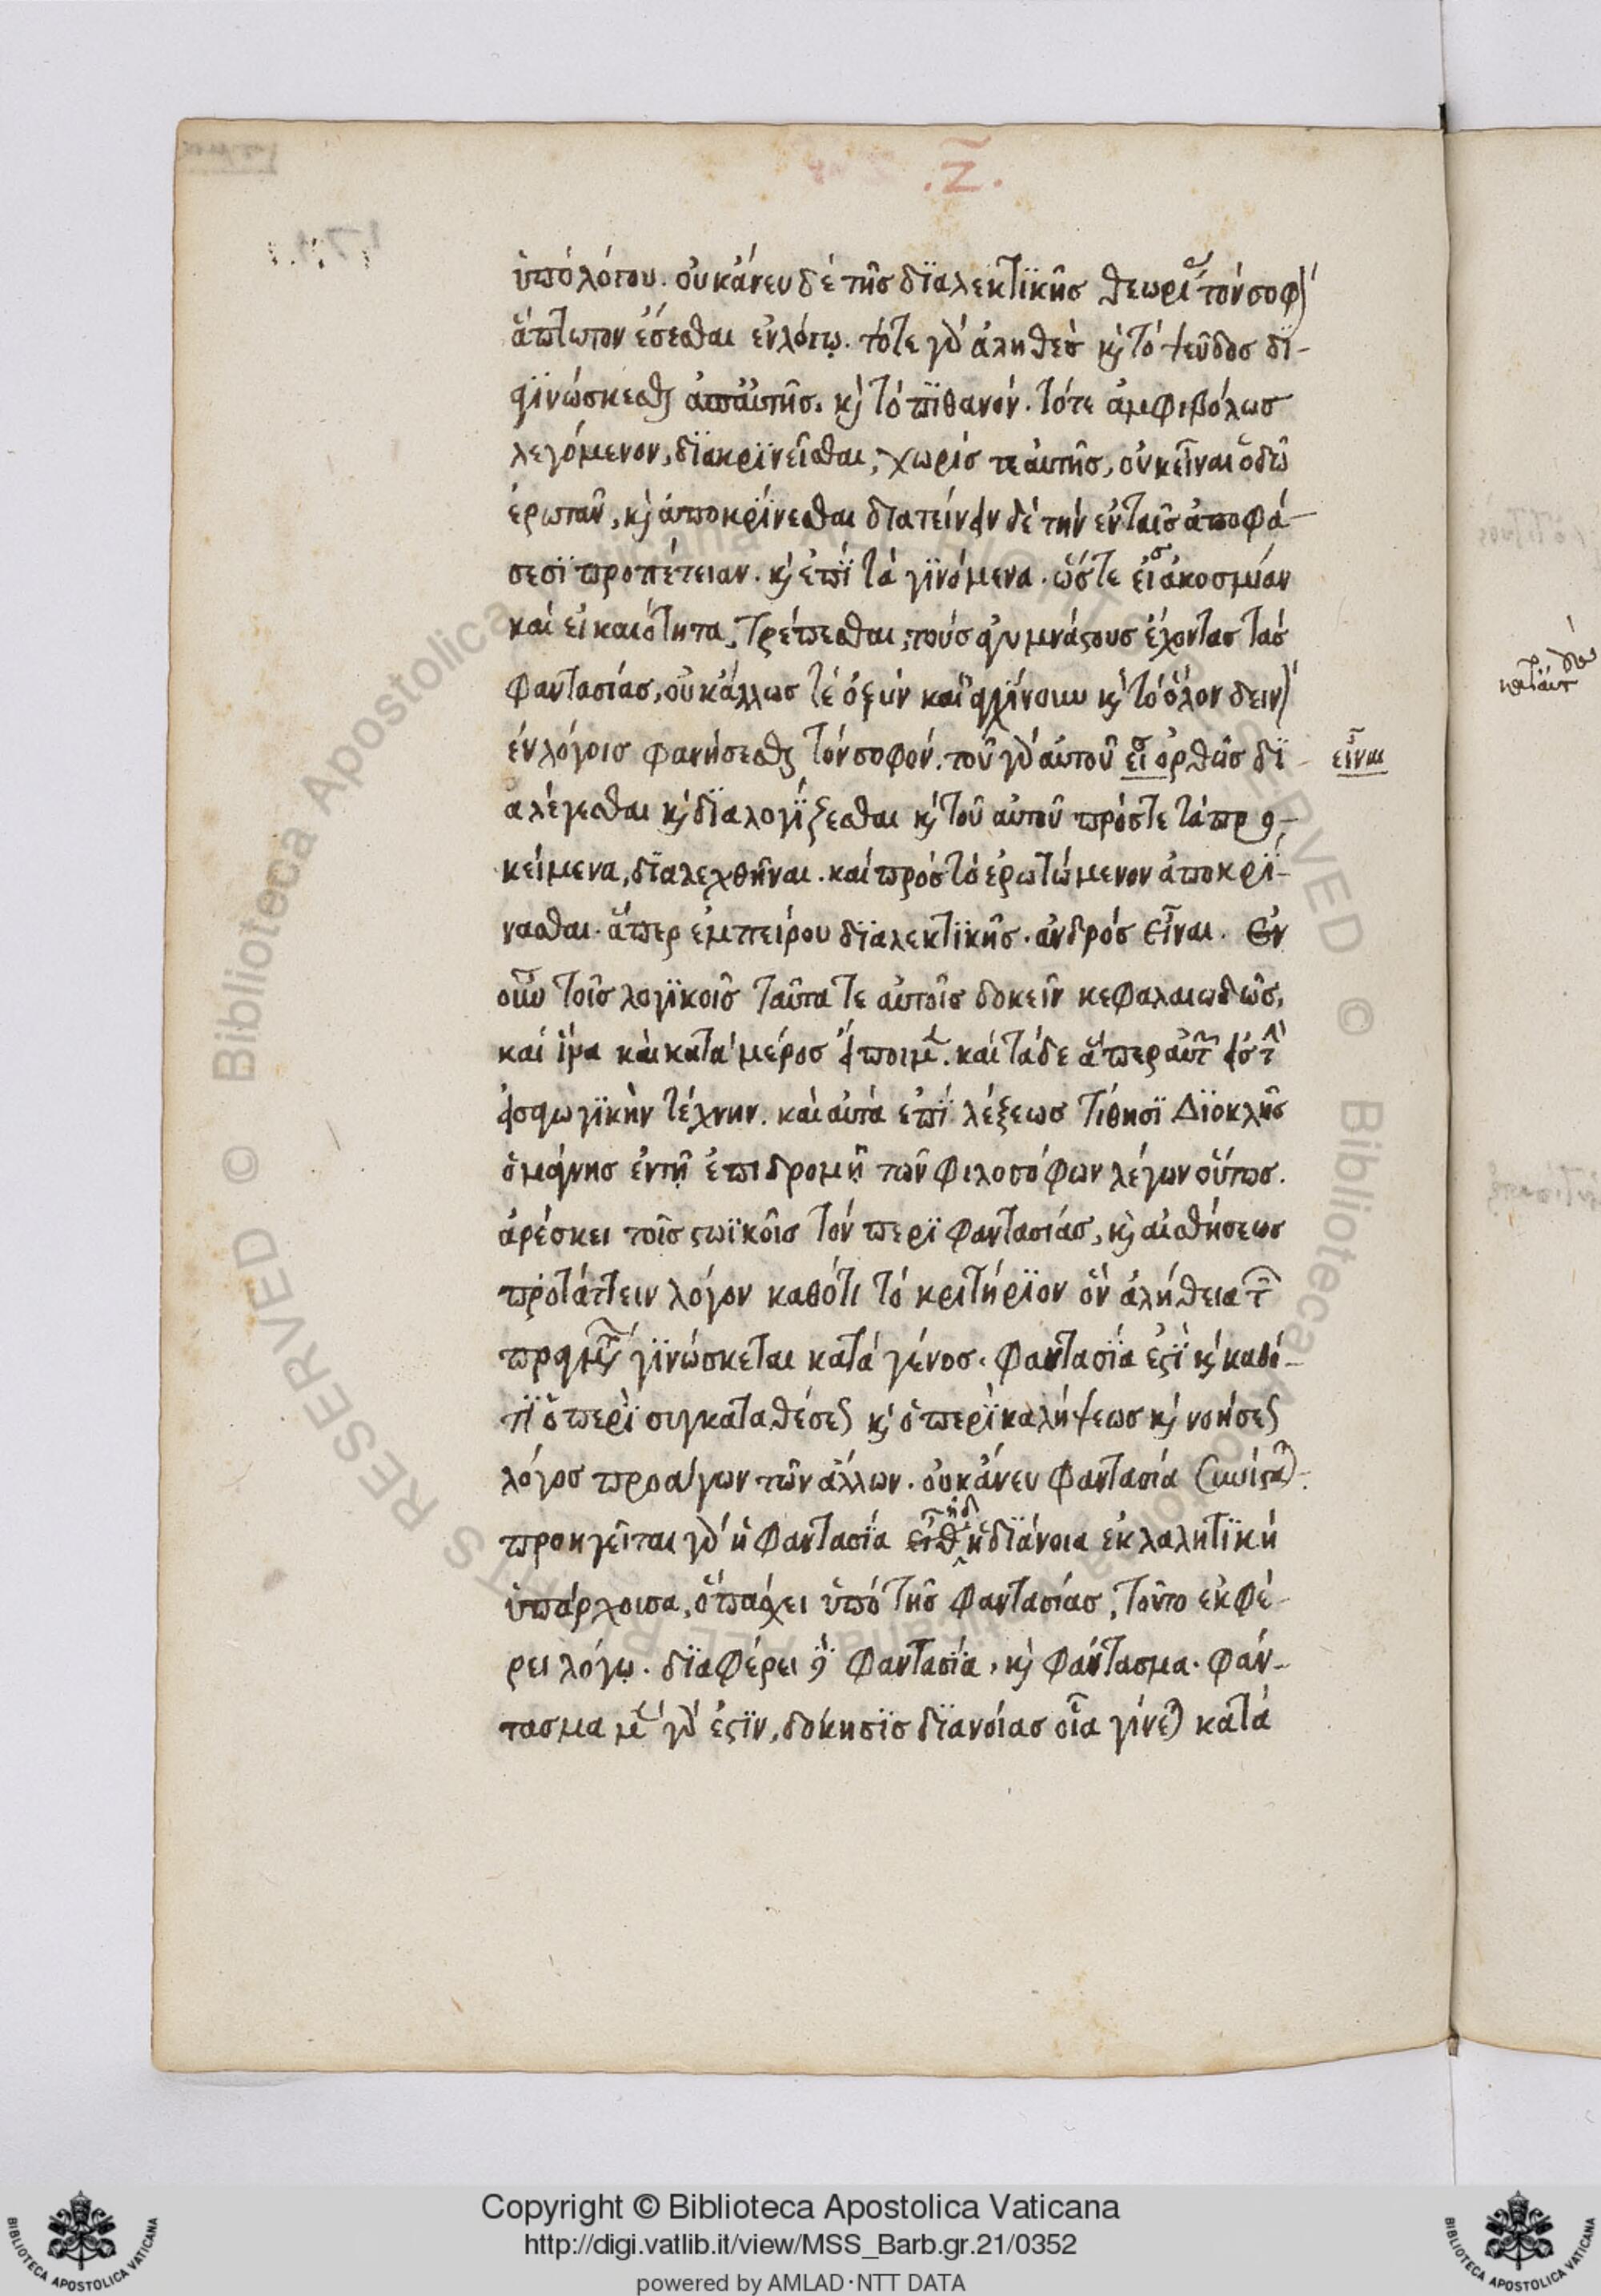 .Ζ̅.
ὑπὸ λόγου. οὐκ ἄνευ δὲ τῆς διαλεκτικῆς θεωρίας τὸν σοφὸν
ἄπτωτον ἔσεσθαι ἐν λόγῳ. τότε γὰρ ἀληθὲς κ τὸ ψεῦδος δι-
γινώσκεσθαι ἀπ' αὐτῆς. κ τὸ πιθανόν. τότε ἀμφιβόλως
λεγόμενον, διακρινεῖσθαι, χωρίς τε αὐτῆς, οὐκ εἶναι ὁδῷ
ἐρωτᾶν, κ ἀποκρίνεσθαι διατείνειν δὲ τὴν ἐν ταῖς ἀποφά-
σεσι προπέτειαν. κ ἐπὶ τὰ γινόμενα. ὥστε εἰς ἀκοσμίαν
καὶ εἰκαιότητα, τρέπεσθαι, τοὺς ἀγυμνάστους ἔχοντας τὰς
φαντασίας, οὐκ ἄλλως τε ὀξὺν καὶ ἀγχίνουν κ τὸ ὅλον δεινὸν
ἐν λόγοις φανήσεσθαι τὸν σοφόν. τοῦ γὰρ αὐτοῦ εἶ ὀρθῶς δι
εἶναι
αλέγεσθαι κ διαλογίζεσθαι κ τοῦ αὐτοῦ πρός τε τὰ προ-
κείμενα, διαλεχθῆναι. καὶ πρὸς τὸ ἐρωτώμενον ἀποκρί-
νασθαι. ἅπερ ἐμπείρου διαλεκτικῆς. ἀνδρὸς εἶναι. Ἐν
οὖν τοῖς λογικοῖς ταῦτά τε αὐτοῖς δοκεῖν κεφαλαιωδῶς,
καὶ ἵνα καὶ κατὰ μέρος εἴποιμεν. καὶ τάδε ἅπερ αὐτῶν εἰς τὴν
εἰσαγωγικὴν τέχνην. καὶ αὐτὰ ἐπὶ λέξεως τίθησι Διοκλῆς
ὁ μάγνης ἐν τῇ ἐπιδρομῇ τῶν φιλοσόφων λέγων οὕτως.
ἀρέσκει τοῖς στωικοῖς τὸν περὶ φαντασίας, κ αἰσθήσεως
προτάττειν λόγον καθότι τὸ κριτήριον ὃν ἀλήθεια τῶν
πραγμάτων γινώσκεται κατὰ γένος. φαντασία ἐστὶ κ καθό-
τι ὁ περὶ συγκαταθέσεως κ ὁ περὶ καλήψεως κ νοήσεως
λόγος προάγων τῶν ἄλλων. οὐκ ἄνευ φαντασία συνίσταται.
προηγεῖται γὰρ ἡ φαντασία εἶθ' ἡ διάνοια ἐκλαλητικὴ
ὑπάρχουσα, ὃ πάσχει ὑπὸ τῆς φαντασίας, τοῦτο ἐκφέ-
ρει λόγῳ. διαφέρει δὲ φαντασία, κ φάντασμα. φάν-
τασμα μὲν γάρ ἐστιν, δόκησις διανοίας οἷα γίνεται κατὰ
Copyright © Biblioteca Apostolica Vaticana
http://digi.vatlib.it/view/MSS_Barb.gr.21/0352
powered by AMLAD·NTT DATA